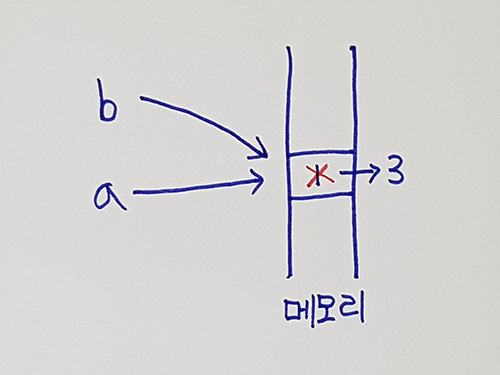 b
a
1 → 3
메모리